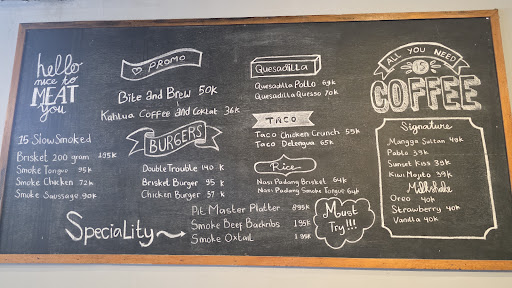 hello
nice to
MEAT
you
15 Slow Smoked
Brisket 200 gram 195K
Smoke Tongue 95K
Smoke Chicken 72K
Smoke Saussage 90K
PROMO
Bite and Brew 50K
Kahlua Coffee and Coktat 36K
BURGERS
Double Trouble 140 K
Brisket Burger 95 K
Chicken Burger 57 K
Quesadilla
Quesadilla Pollo 69K
Quesadilla Quesso 70K
TACO
Taco Chicken Crunch 55K
Taco Delengua 65K
Rice
Nasi Padang Brisket 64K
Nasi Padang Smoke Tongue 64K
SpeciaLity
Pit Master Platter 895K
Smoke Beef Backribs 195K
Smoke Oxtail 195K
Must
Try!!!
ALL YOU NEED
IS
COFFEE
Signature
Mangga Sultan 49K
Pablo 39K
Sunset Kiss 39K
Kiwi Mojito 39K
Milkshake
Oreo 40K
Strawberry 40K
Vanilla 40K